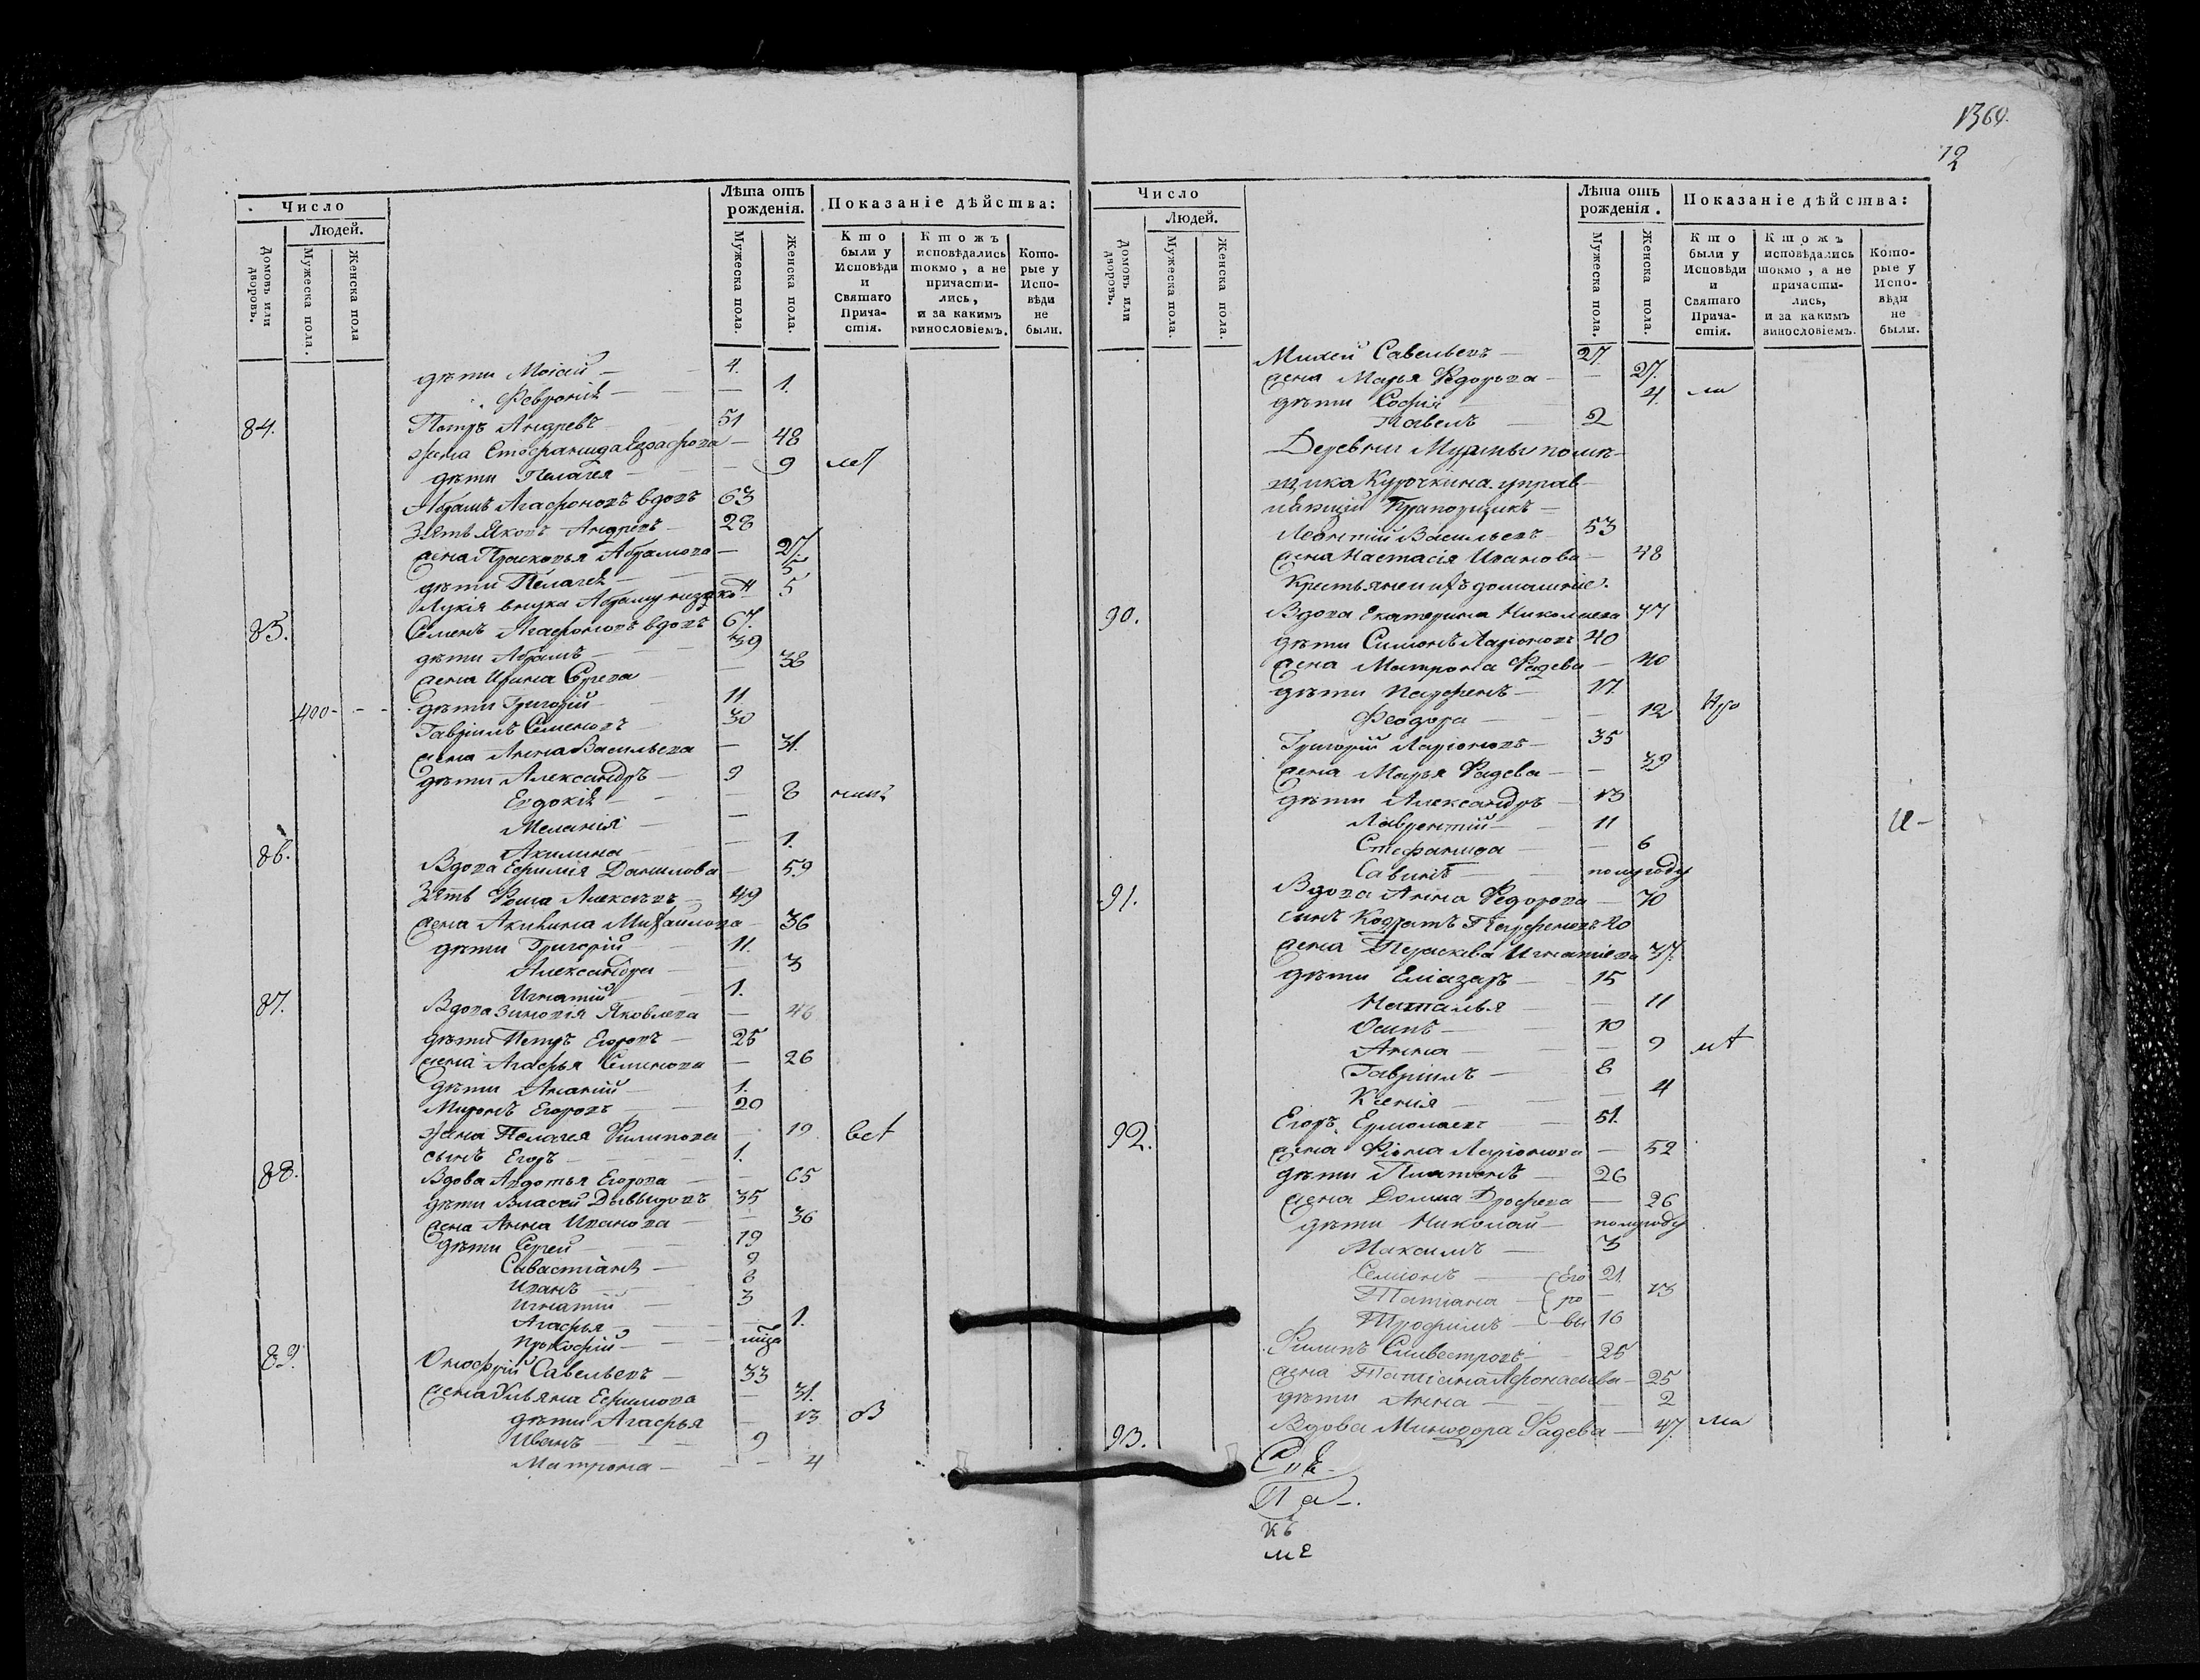 1369.
12
Число
Людей.
Домовъ или дворовъ.
Мужеска пола.
Женска пола
Лѣта отъ рожденія.
Мужеска пола.
Женска пола.
Показаніе дѣйства:
Кто были у Исповѣди и Святаго Причастія.
Ктожъ исповѣдались токмо, а не причастились, и за какимъ винословіемъ.
Которые у Исповѣди не были.
дѣти Моісей — 4.
Февронія — 1.
84. Петръ Андревъ 51
жена Стефанида — 48
дѣти Пелагея — 9
Абрамъ Агафоновъ вдовъ 63
Зять Яковъ Андревъ 28
жена Прасковья Абрамова — 27.
дѣти Пелагея — 5
Лукія внучка Абраму 5
85. Семенъ Агафоновъ вдовъ 67.
дѣти Абрамъ — 39
жена Ирина — 38
400 - - - дѣти Григорій — 11
Гавріилъ Семеновъ 30
жена Анна Васильева — 31.
дѣти Александръ — 9
Евдокія — 8
Меланія —
Акилина — 1.
86. Вдова Ефимія Данилова — 59
Зять Фома Алексѣевъ — 49
жена Акилина Михайлова — 36
дѣти Григорій 11.
Александра — 3
Игнатій 1.
87. Вдова Зиновія Яковлева — 46
дѣти Петръ Егоровъ — 25
жена Агафья Семенова — 26
дѣти Ананій — 1.
Миронъ Егоровъ 20
жена Пелагея Филипова — 19 всѣ
сынъ Егоръ — 1.
88. Вдова Авдотья Егорова — 65
дѣти Власей Давыдовъ 35
жена Анна Иванова — 36
дѣти Сергей 19
Савастіанъ — 9
Иванъ — 8
Игнатій — 3
Агафья — 1.
Прокофій —
89. Онофрій Савельевъ — 33
жена Ульяна Ефимова — 31.
дѣти Агафья — 13
Иванъ — 9
Матрона — 4
Число
Людей.
Домовъ или дворовъ.
Мужеска пола.
Женска пола.
Лѣта отъ рожденія.
Мужеска пола.
Женска пола.
Показаніе дѣйства:
Кто были у Исповѣди и Святаго Причастія.
Ктожъ исповѣдались токмо, а не причастились, и за какимъ винословіемъ.
Которые у Исповѣди не были.
Михей Савельевъ — 27.
жена Марья Федорова — 27.
дѣти Софія 4.
Павелъ — 2
Деревни помѣ-
щика Курочкина управ-
ляющій Прапорщикъ —
Леонтій Васильевъ — 53
жена Настасія Иванова — 48
Крестьяне и ихъ домашніе.
90. Вдова Екатерина Николаева 77
дѣти Симіонъ Ларіоновъ 40
жена Матрона Фадева — 40
дѣти Парфенъ — 17.
Феодора — 12
Григорій Ларіоновъ — 35
жена Марья Фадева — 39
дѣти Александръ — 13
Лаврентій — 11
Стефанида — 6
Савинъ — полугоду
91. Вдова Анна Федорова — 70
сынъ Кодратъ Парфеновъ 40
жена Параскева Игнатіева 37.
дѣти Еліазаръ — 15
Наталья — 11
Осипъ — 10
Анна — 9
Гавріилъ — 8
Ксенія — 4
92. Егоръ Ермолаевъ — 51.
жена Фіона Ларіонова — 52
дѣти Платонъ — 26
жена Домна — 26
дѣти Николай — полугоду
Максимъ — 3
Семіонъ — (Его 21.
Татіана — (ро — 13
Трофимъ — (вы 16
Филипъ Сильвестровъ — 25
жена Татіана Афонасьева — 25
дѣти Анна — 2
93. Вдова Минодора Фадева — 47.